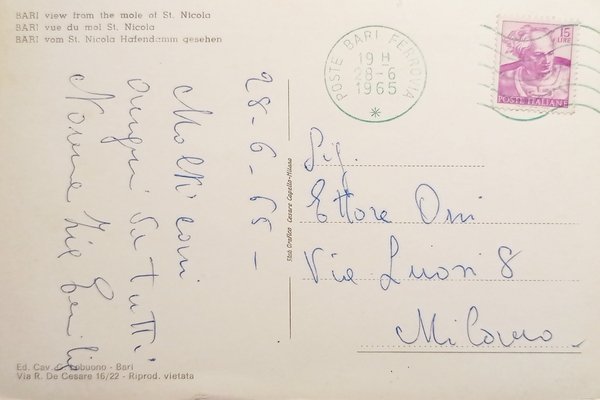 BARI view from the mole of St. Nicola
BARI vue du mol St. Nicola
BARI vom St. Nicola Hafendamm gesehen
28-6-65-
Molti cari
auguri da tutti
Nonna zia
POSTE BARI FERROVIA
19 H
28-6
1965
15
LIRE
POSTE ITALIANE
Stab Grafico Cesare Capello-Milano
Sig.
Ettore
Via Luosi 8
Milano.
Ed. Cav. - Bari
Via R. De Cesare 16/22 - Riprod. vietata